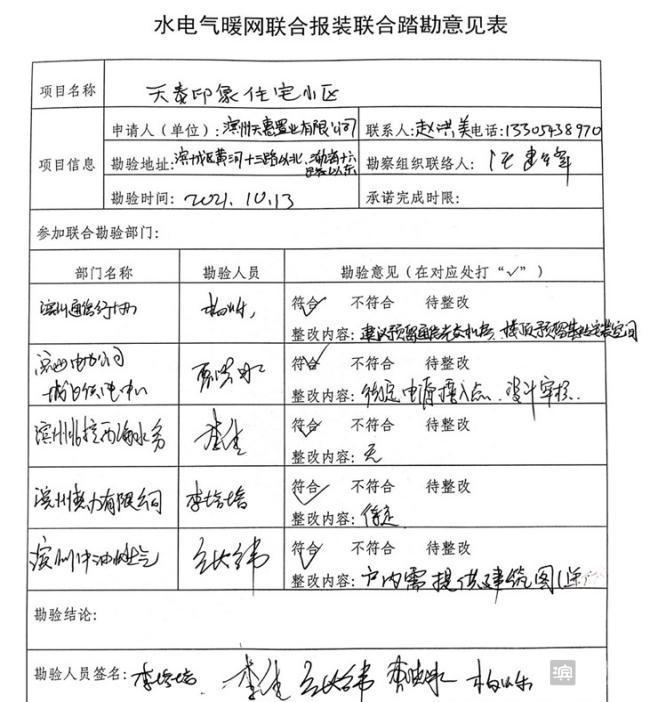 水电气暖网联合报装联合踏勘意见表
项目名称 天泰印象住宅小区
项目信息
申请人（单位）：滨州天惠置业有限公司 联系人：赵洪美 电话：13305438970
勘验地址：滨城区黄河十二路以北、渤海十六路以东 勘察组织联络人：
勘验时间：2021.10.13 承诺完成时限：
参加联合勘验部门：
部门名称 勘验人员 勘验意见（在对应处打“✓”）
滨州通信行办 符合 ✓ 不符合 待整改
整改内容：建议预留通信光交机房、楼顶预留基站安装空间
公司 符合 ✓ 不符合 待整改
整改内容：待定电源接入点、设计审核.
滨州北控西海水务 李生 符合 ✓ 不符合 待整改
整改内容：无
滨州热力有限公司 李培培 符合 ✓ 不符合 待整改
整改内容：
滨州中油燃气 符合 ✓ 不符合 待整改
整改内容：户内需提供建筑图
勘验结论：
勘验人员签名：李培培 李生
滨